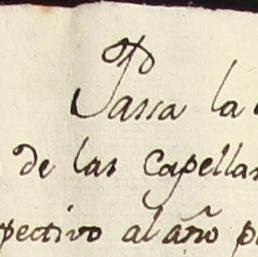 Passa la
de las Capellas
pectivo al año p